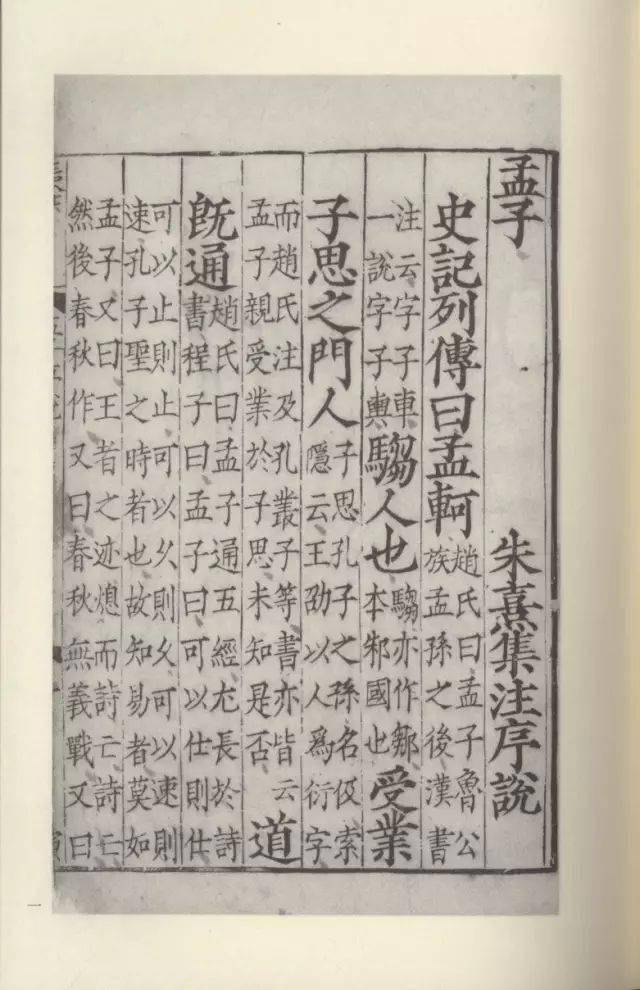 孟子 朱熹集注序說
史記列傳曰孟軻趙氏曰孟子魯公族孟孫之後漢書
注云字子車一說字子輿騶人也騶亦作鄒本邾國也受業
子思之門人子思孔子之孫名伋索隱云王劭以人爲衍字
而趙氏注及孔叢子等書亦皆云孟子親受業於子思未知是否道
旣通趙氏曰孟子通五經尤長於詩書程子曰孟子曰可以仕則仕
可以止則止可以久則久可以速則速孔子聖之時者也故知易者莫如
孟子又曰王者之迹熄而詩亡詩亡然後春秋作又曰春秋無義戰又曰